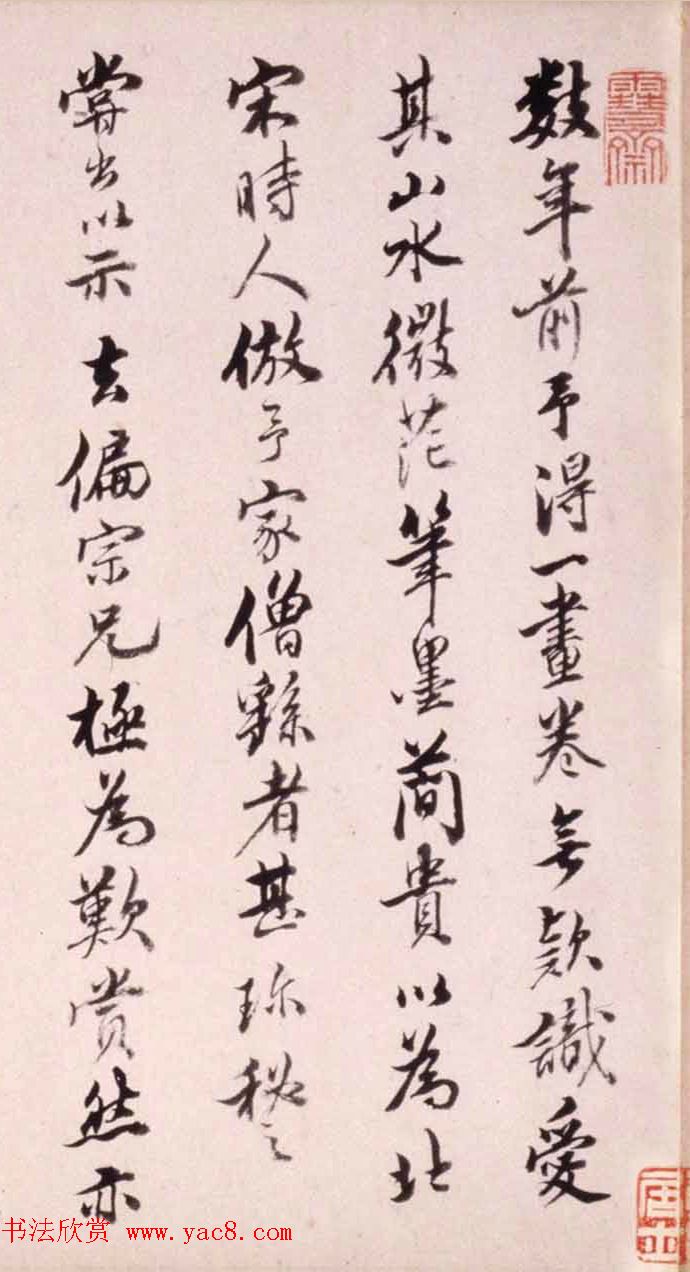 数年前予得一畫卷無款識愛
其山水微茫筆墨簡貴以為北
宋時人倣予家僧繇者甚珍秘之
嘗出以示去偏宗兄極為歎賞然亦
书法欣赏 www.yac8.com